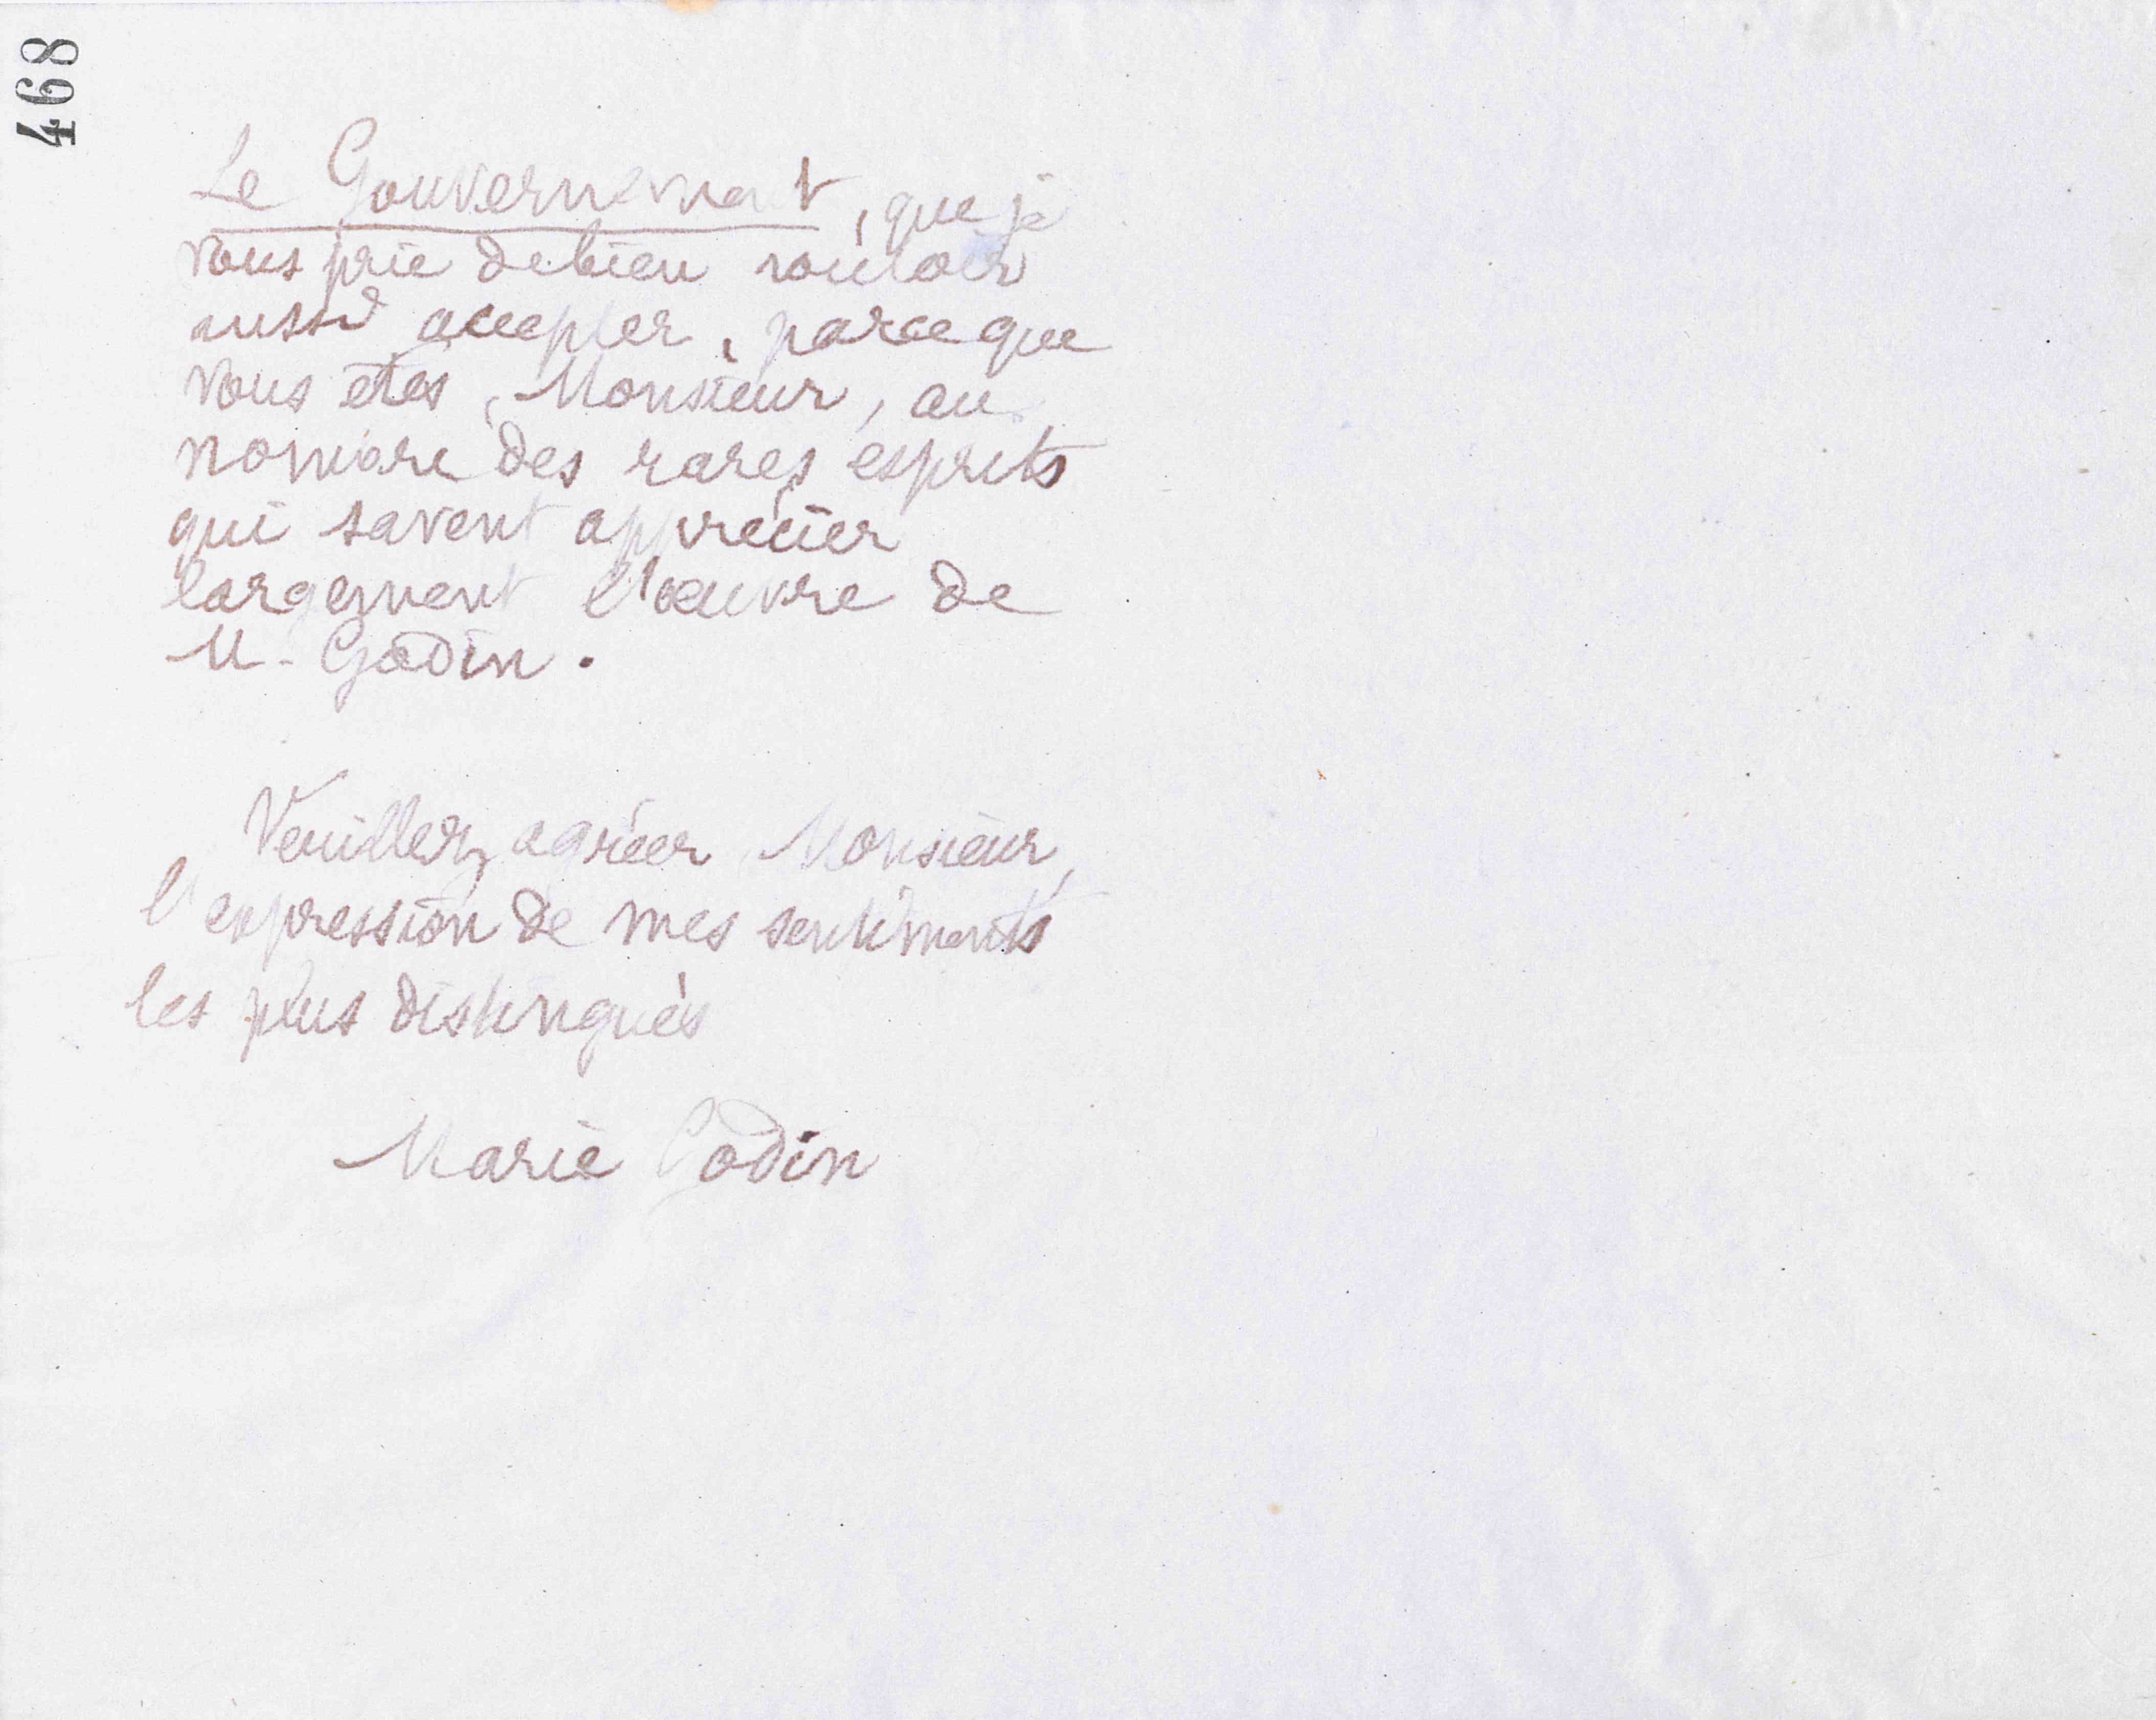 468
Le Gouvernement, que je
vous prie de bien vouloir
aussi accepter, parce que
vous êtes, Monsieur, au
nombre des rares esprits
qui savent apprécier
largement l'œuvre de
M. Godin.
Veuillez agréer Monsieur,
l'expression de mes sentiments
les plus distingués
Marie Godin